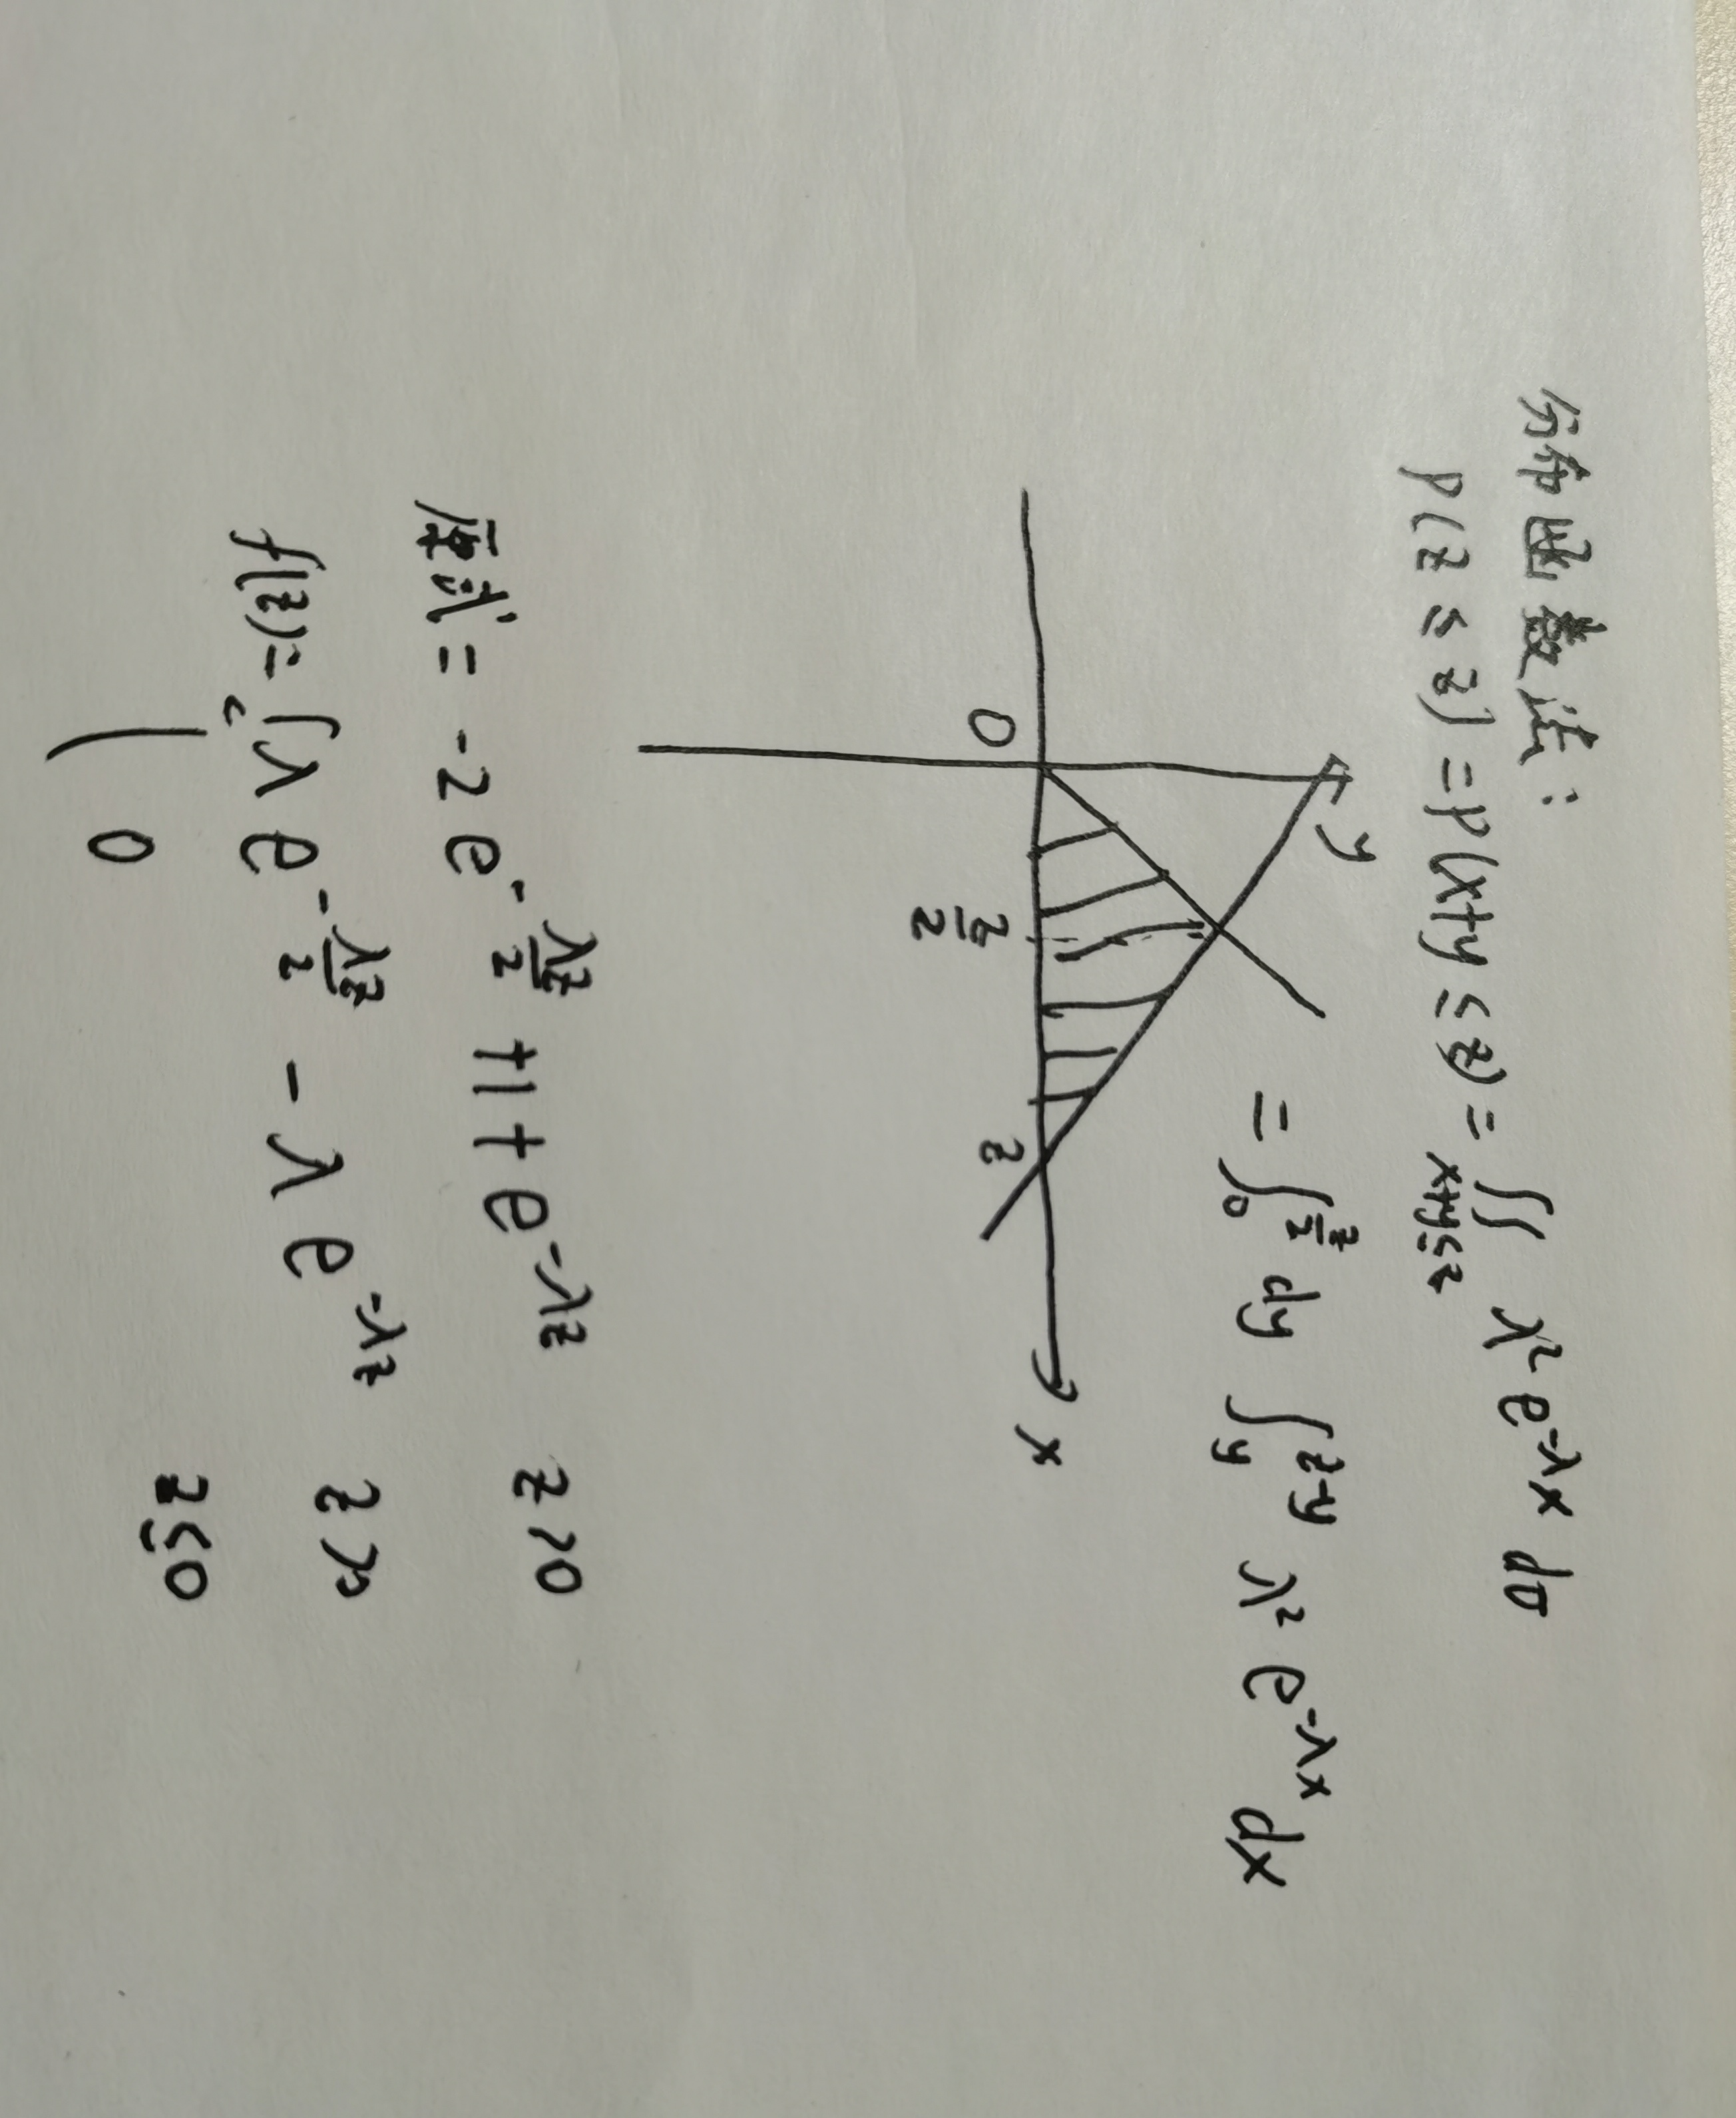 分布函数法:
P(Z ≤ z) = P(x+y ≤ z) = ∬_{x+y≤z} λ² e^{-λx} dσ
= ∫_0^{z/2} dy ∫_y^{z-y} λ² e^{-λx} dx
y
O
z/2
z
x
原式 = -2 e^{-λz/2} + 1 + e^{-λz} z>0
f(z) = { λ e^{-λz/2} - λ e^{-λz} z>0
0 z≤0